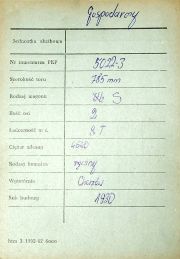 Gospodarczy
Jednostka służbowa
Nr inwentarza PKP 5022-3
Szerokość toru 785 mm
Rodzaj wagonu S
Ilość osi 2
Ładowność w t. 8 T
Ciężar własny
Rodzaj hamulca ręczny
Wytwórnia Chorzów
Rok budowy 1930